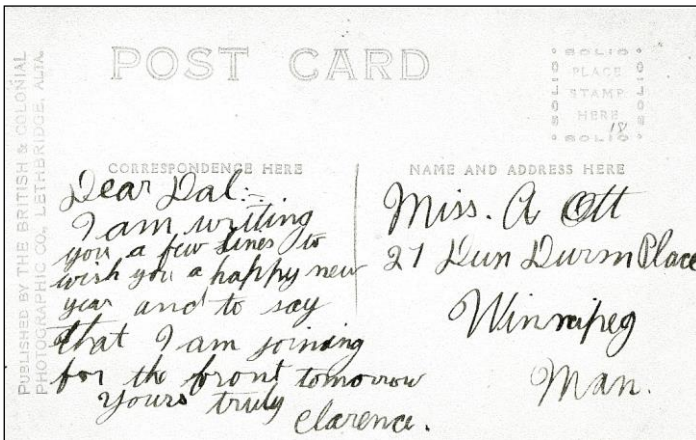 PUBLISHED BY THE BRITISH & COLONIAL
PHOTOGRAPHIC CO., LETHBRIDGE, ALTA.
POST CARD
SOLIO
PLACE
STAMP
HERE
181
SOLIO
CORRESPONDENCE HERE
Dear Dal:-
I am writing
you a few lines to
wish you a happy new
year and to say
that I am joining
for the front tomorrow
yours truly
Clarence.
NAME AND ADDRESS HERE
Miss. A Ott
21 Dun Durm Place
Winnipeg
Man.